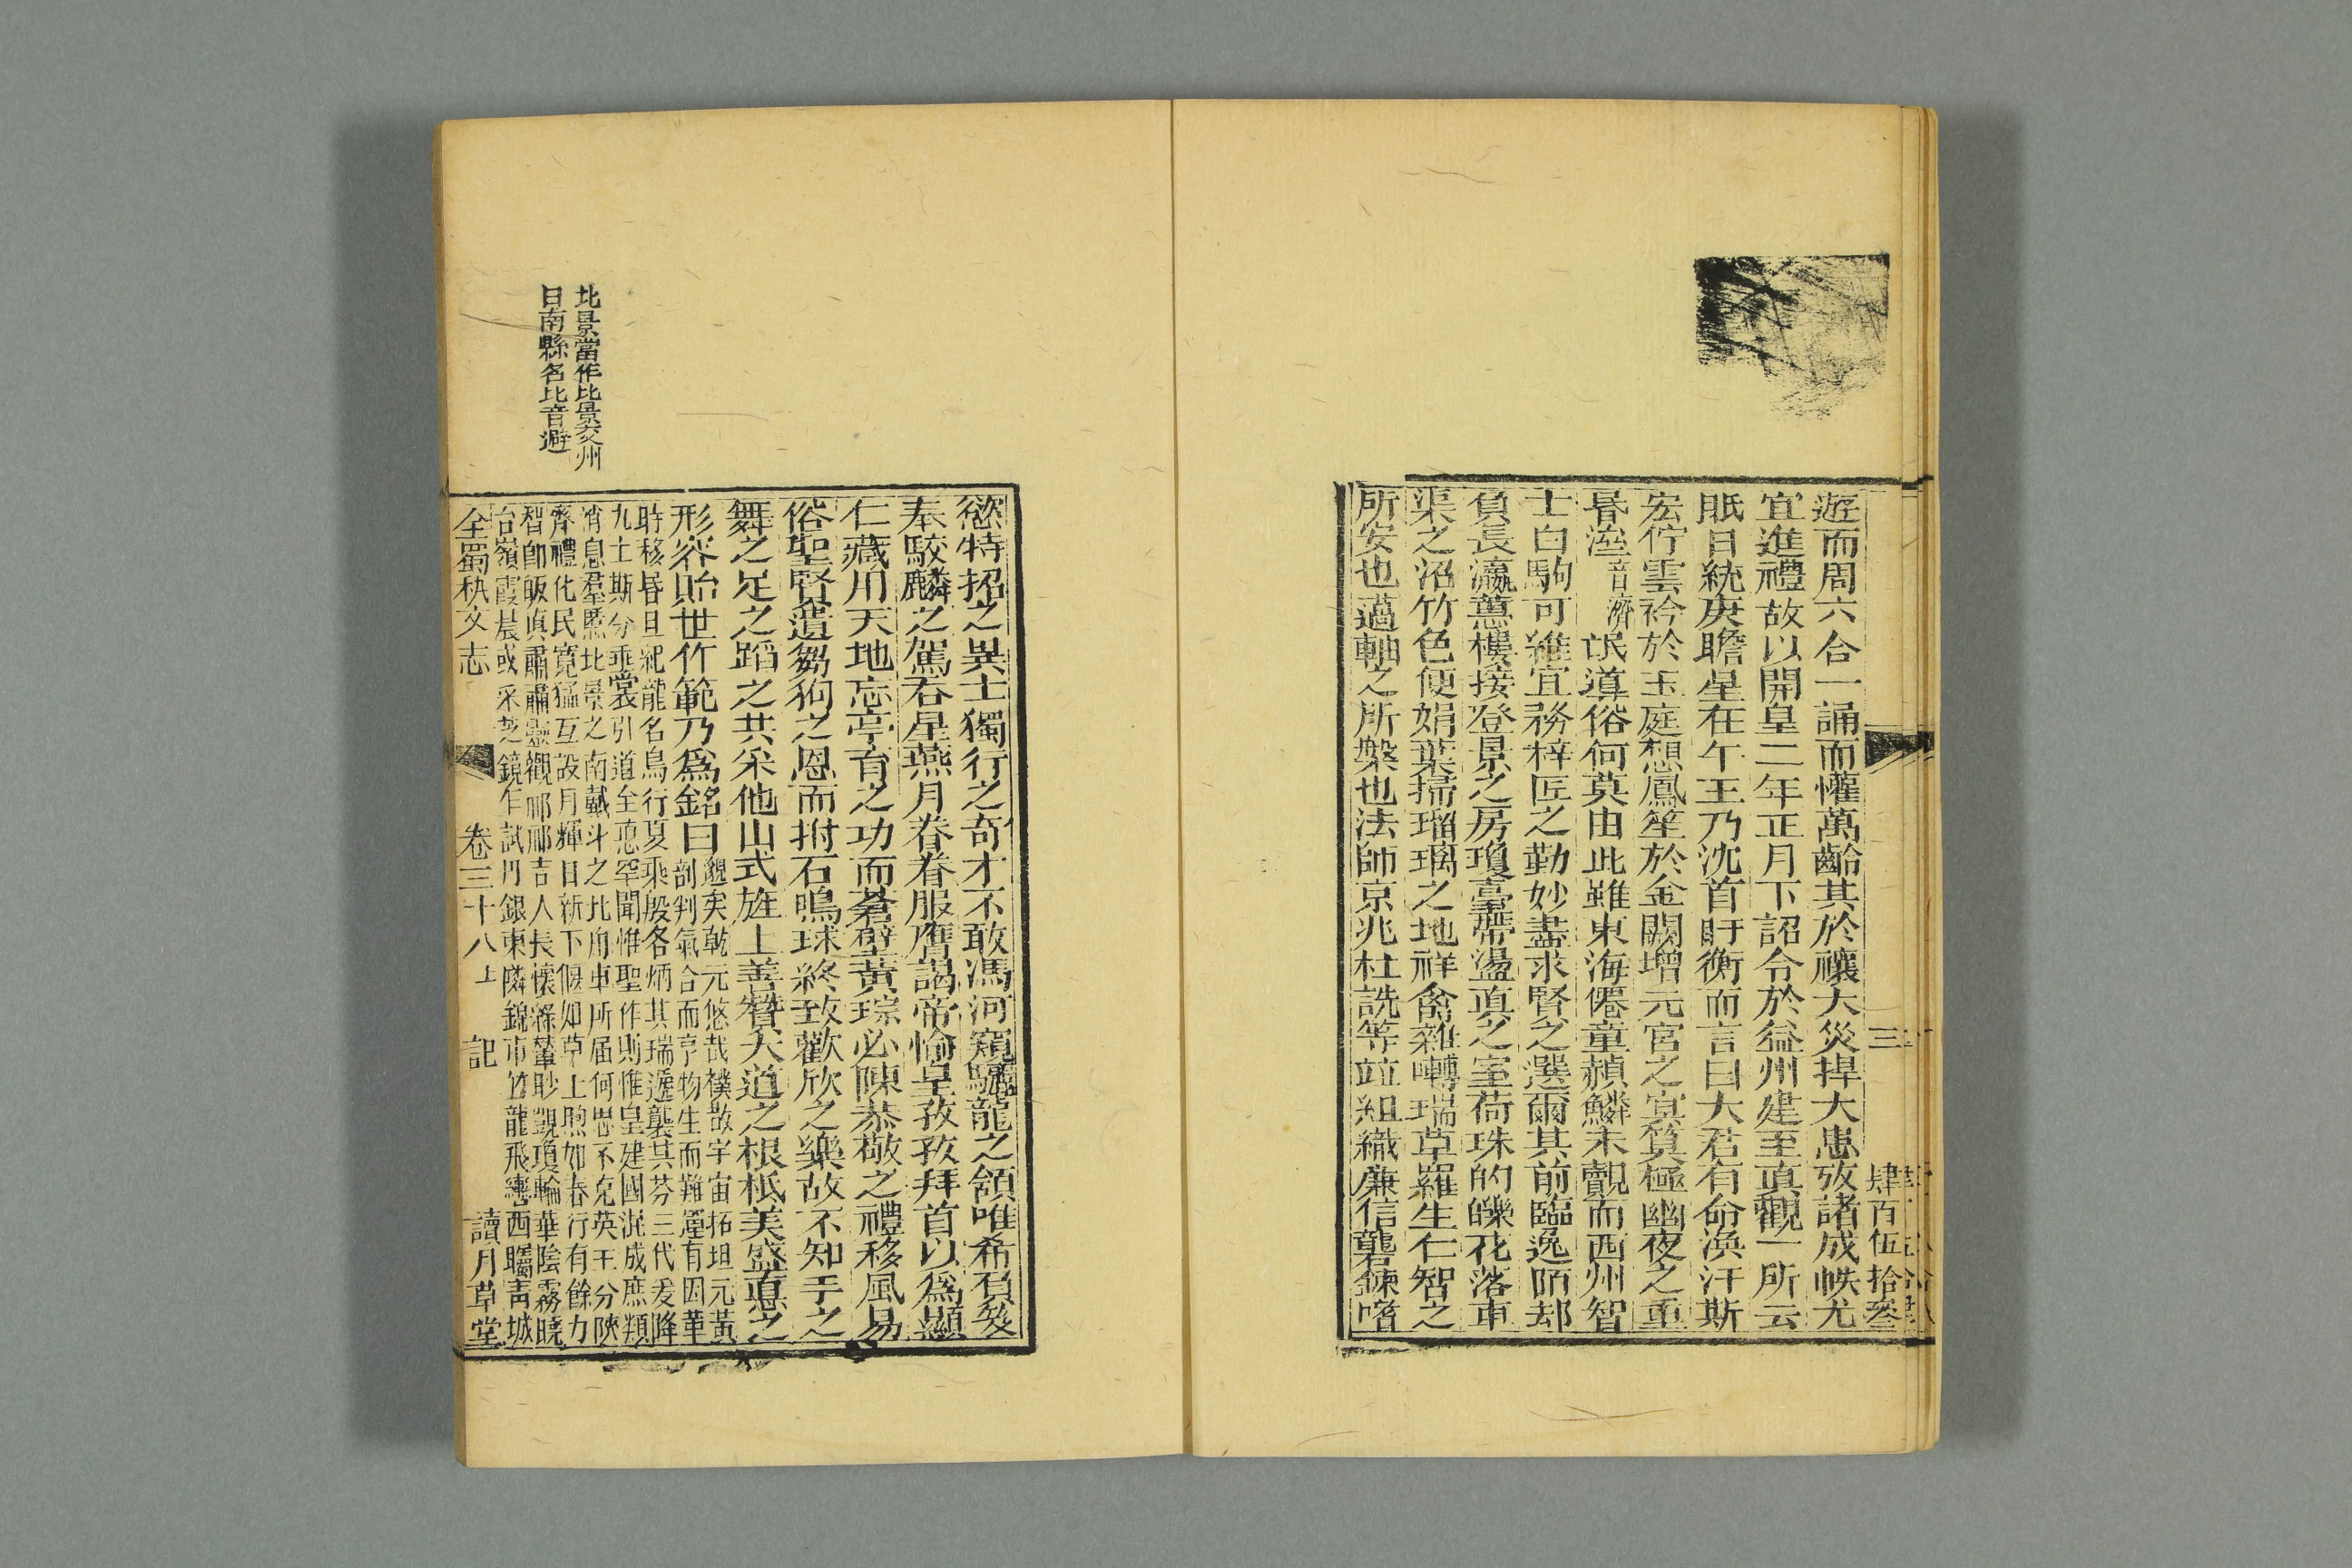 三 肆百伍拾叄
遊而周六合一誦而懽萬齡其於禳大災捍大患攷諸成帙尤
宜進禮故以開皇二年正月下詔令於益州建至眞觀一所云
眂日統庚瞻星在午王乃沈首盱衡而言曰大君有命渙汗斯
宏佇雲衿於玉庭想鳳笙於金闕增元宮之寘筫極幽夜之重
昬溼音濟氓導俗何莫由此雖東海僊童赬鱗未覿而西州智
士白駒可維宜務梓匠之勤妙盡求賢之選爾其前臨逸陌却
負長瀛蕙樓接登景之房瓊臺帶盪眞之室荷珠的皪花落車
渠之沼竹色便娟葉掃瑠璃之地祥禽雜囀瑞草羅生仁智之
所安也薖軸之所槃也法師京兆杜詵等竝組織廉信礱鍊嗜
慾特招之異士獨行之奇才不敢馮河窺驪龍之頷唯希負笈
奉駮麟之駕吞星燕月眷眷服膺謁帝愉皇孜孜拜首以爲顯
仁藏用天地忘亭育之功而蒼璧黃琮必陳恭敬之禮移風易
俗聖賢遺芻狗之恩而拊石鳴球終致歡欣之樂故不知手之
舞之足之蹈之共采他山式旌上善贊大道之根柢美盛悳之
形容貽世作範乃爲銘曰邈矣乾元悠哉樸散宇宙拓坦元黃
剖判氣合而亨物生而難運有因革
時移昬旦紀龍名鳥行夏乘殷各炳其瑞遞襲其芬三代爰降
九土斯分垂裳引道至悳罕聞惟聖作則惟皇建國混成庶類
消息羣黎北景之南戴斗之北舟車所届何思不克英王分陝
齊禮化民寬猛互設月輝日新下偃如草上煦如春行有餘力
智卽皈眞肅肅靈觀邴邴吉人長懷滌輦眇覬瓊輪華陰霧曉
台嶺霞晨或采芝鏡乍試丹銀東隣錦市竹龍飛轡西矚靑城
全蜀秇文志 卷三十八上 記 讀月草堂
北景當作比景交州
日南縣名比音避